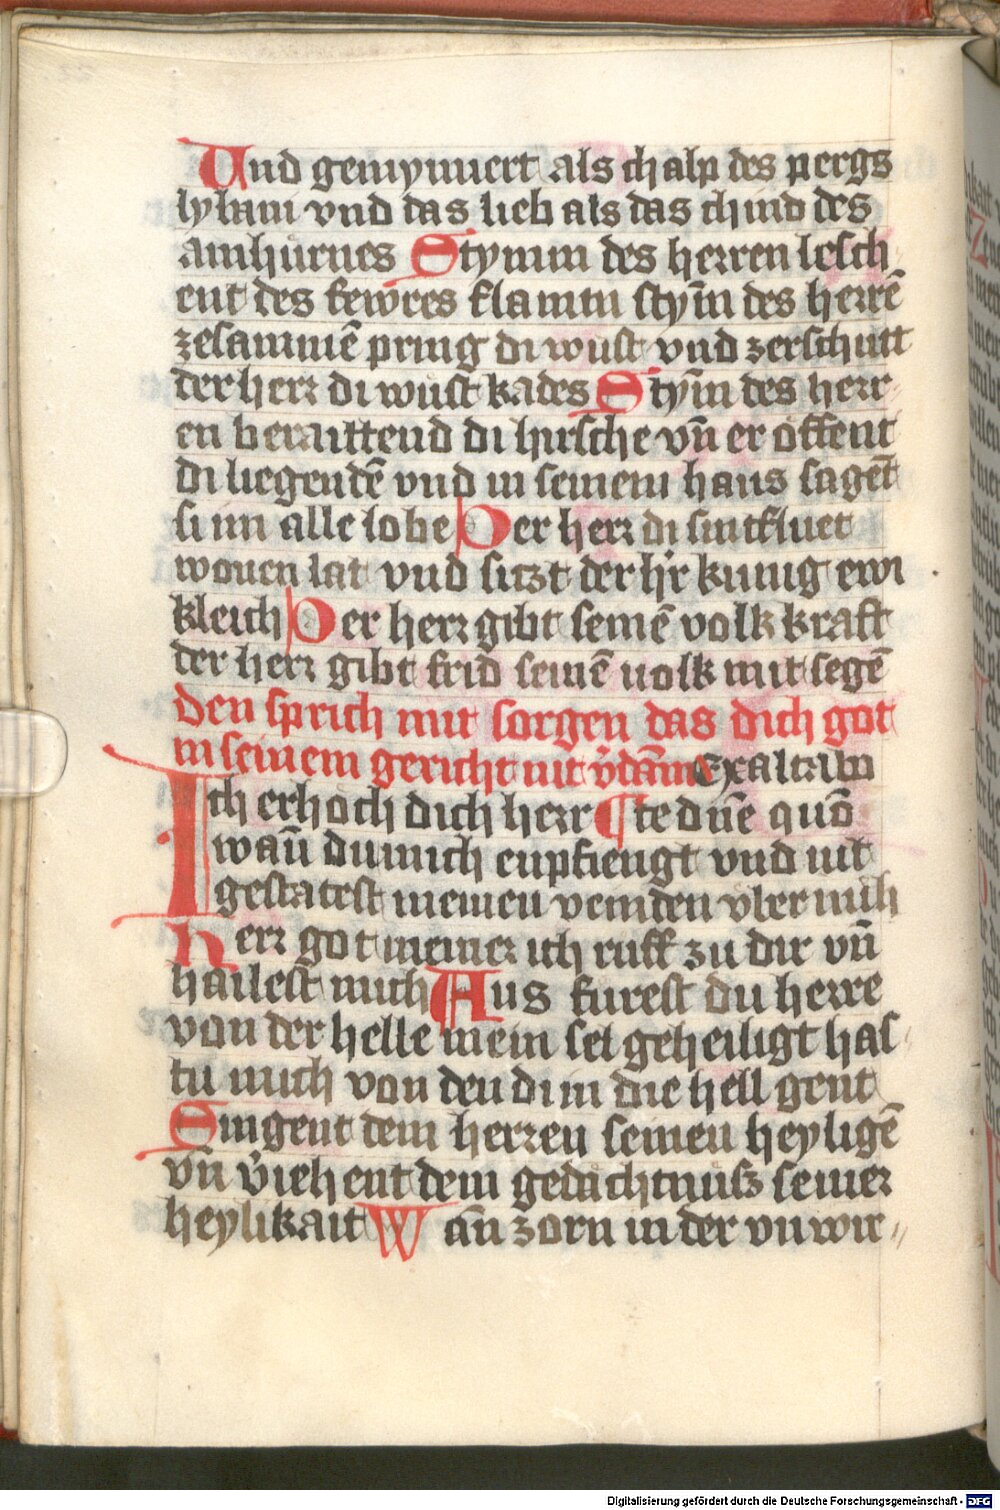 Und gemynnert als chalp des pergs
lyban vnd das lieb als das chind des
ainhürnes Stymm des herren lesch
ent des fewres flamm stym̄ des herrē
zesammē pring di wüst vnd zerschutt
der herr di wüst kades Stym̄ des herr
en beraittend di hirsche vn̄ er offent
di liegendē vnd in seinem haus sagēt
si im alle lobe Der herr di sintfluet
wonen lat vnd sitzt der hr̄ kunig ewi
kleich Der herr gibt seinē volk kraft
der herr gibt frid seinē uolk mit segē
den sprich mit sorgen das dich got
in seinem gericht nit v̈dam̄ Exaltabo
Ich erhoch dich herr te dn̄e quō
wan̄ du mich enpfiengt vnd nit
gestatest meinen veinden vber mich
Herr got meiner ich ruff zu dir vn̄
hailest mich Aus furest du herre
von der helle mein sel geheiligt has
tu mich von den di in die hell gent
Singent dem herren seinen heyligē
vn̄ v̈iehent dem gedächtnuss seiner
heylikait Wan̄ zorn in der vnwir〃
Digitalisierung gefördert durch die Deutsche Forschungsgemeinschaft - DFG